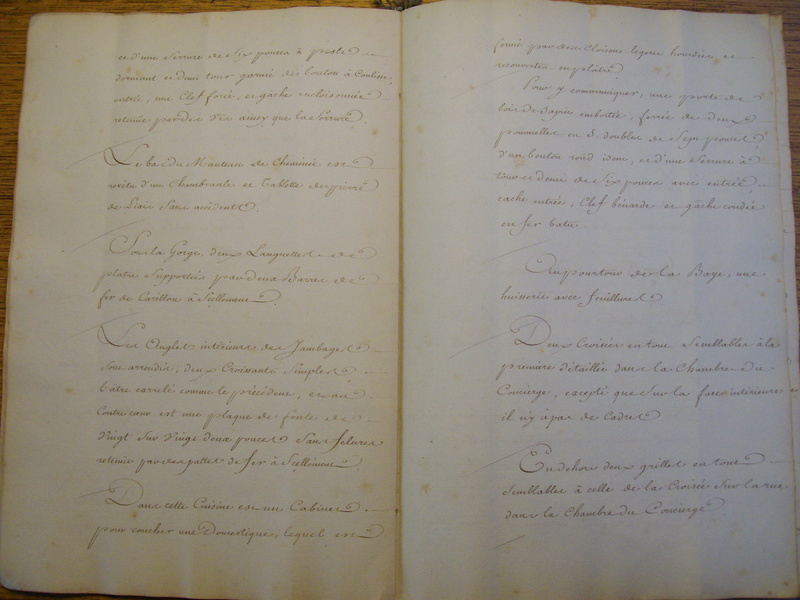 et d'une Serrure de Six pouces à peste
dormant et demi tour garnie de bouton à Coulisse,
entrée, une Clef forée, et gâche encloisonnée
retenue par des Vis ainsy que la Serrure.
Le bas du Manteau de Cheminée est
revêtu d'un Chambranle et tablette de pierre
de Liais Sans accident.
Sous la Gorge, deux Languettes de
platre Supportées par deux Barres de
fer de Carillon à Scellement.
Les Angles intérieurs des Jambages
sont arrondis, deux Croissants Simples
l'âtre carrelé comme le précédent, et au
Contre cœur est une plaque de fonte de
Vingt Sur Vingt deux pouces Sans felures
retenue par des pattes de fer à Scellement.
Dans cette Cuisine est un Cabinet
pour coucher une Domestique, lequel est
fermé par des Cloisons legere hourdées et
recouvertes en platre
Pour y communiquer, une porte de
bois de Sapin emboitée, ferrée de deux
poumelles en S doubles de Sept pouces
d'un bouton rond idem, et d'une Serrure à
tour et demi de Six pouces avec entrée,
cache entrée, Clef bénarde et gâche coudée
en fer batu
Au pourtour de la Baye, une
huisserie avec feuillures
Deux Croisées en tout Semblables à la
premiere détaillée dans la Chambre du
Concierge, excepté que Sur la face intérieure
il n'y à pas de Cadres
En dehors deux grilles en tout
Semblables à celle de la Croisée Sur la rue
dans la Chambre du Concierge